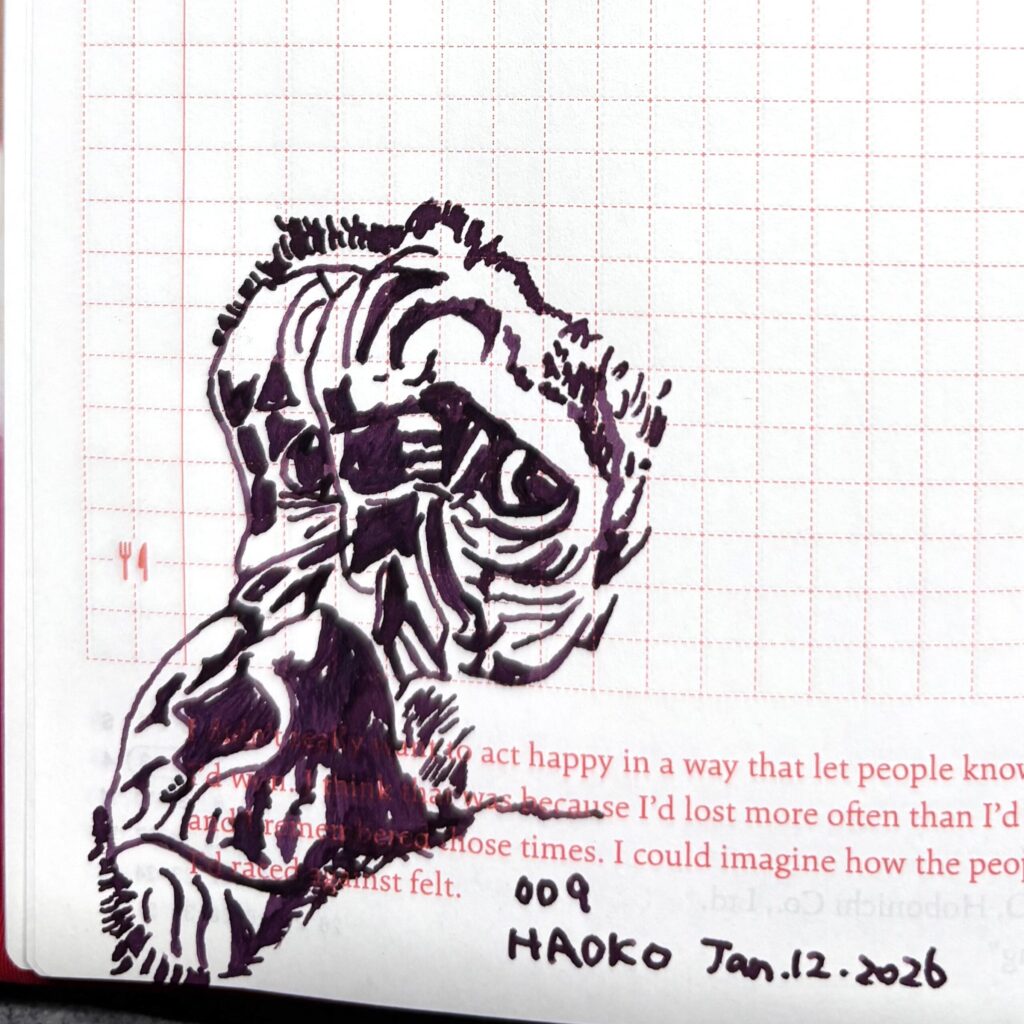 I didn't really want to act happy in a way that let people know
I'd won. I think that was because I'd lost more often than I'd
and I remembered those times. I could imagine how the peop
I'd raced against felt.
009
HAOKO Jan.12.2026